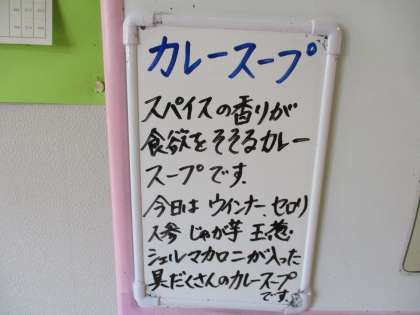 カレースープ
スパイスの香りが
食欲をそそるカレー
スープです.
今日は ウインナー、セロリ
人参 じゃが芋 玉葱.
シェルマカロニが入った
具だくさんのカレースープ
です.